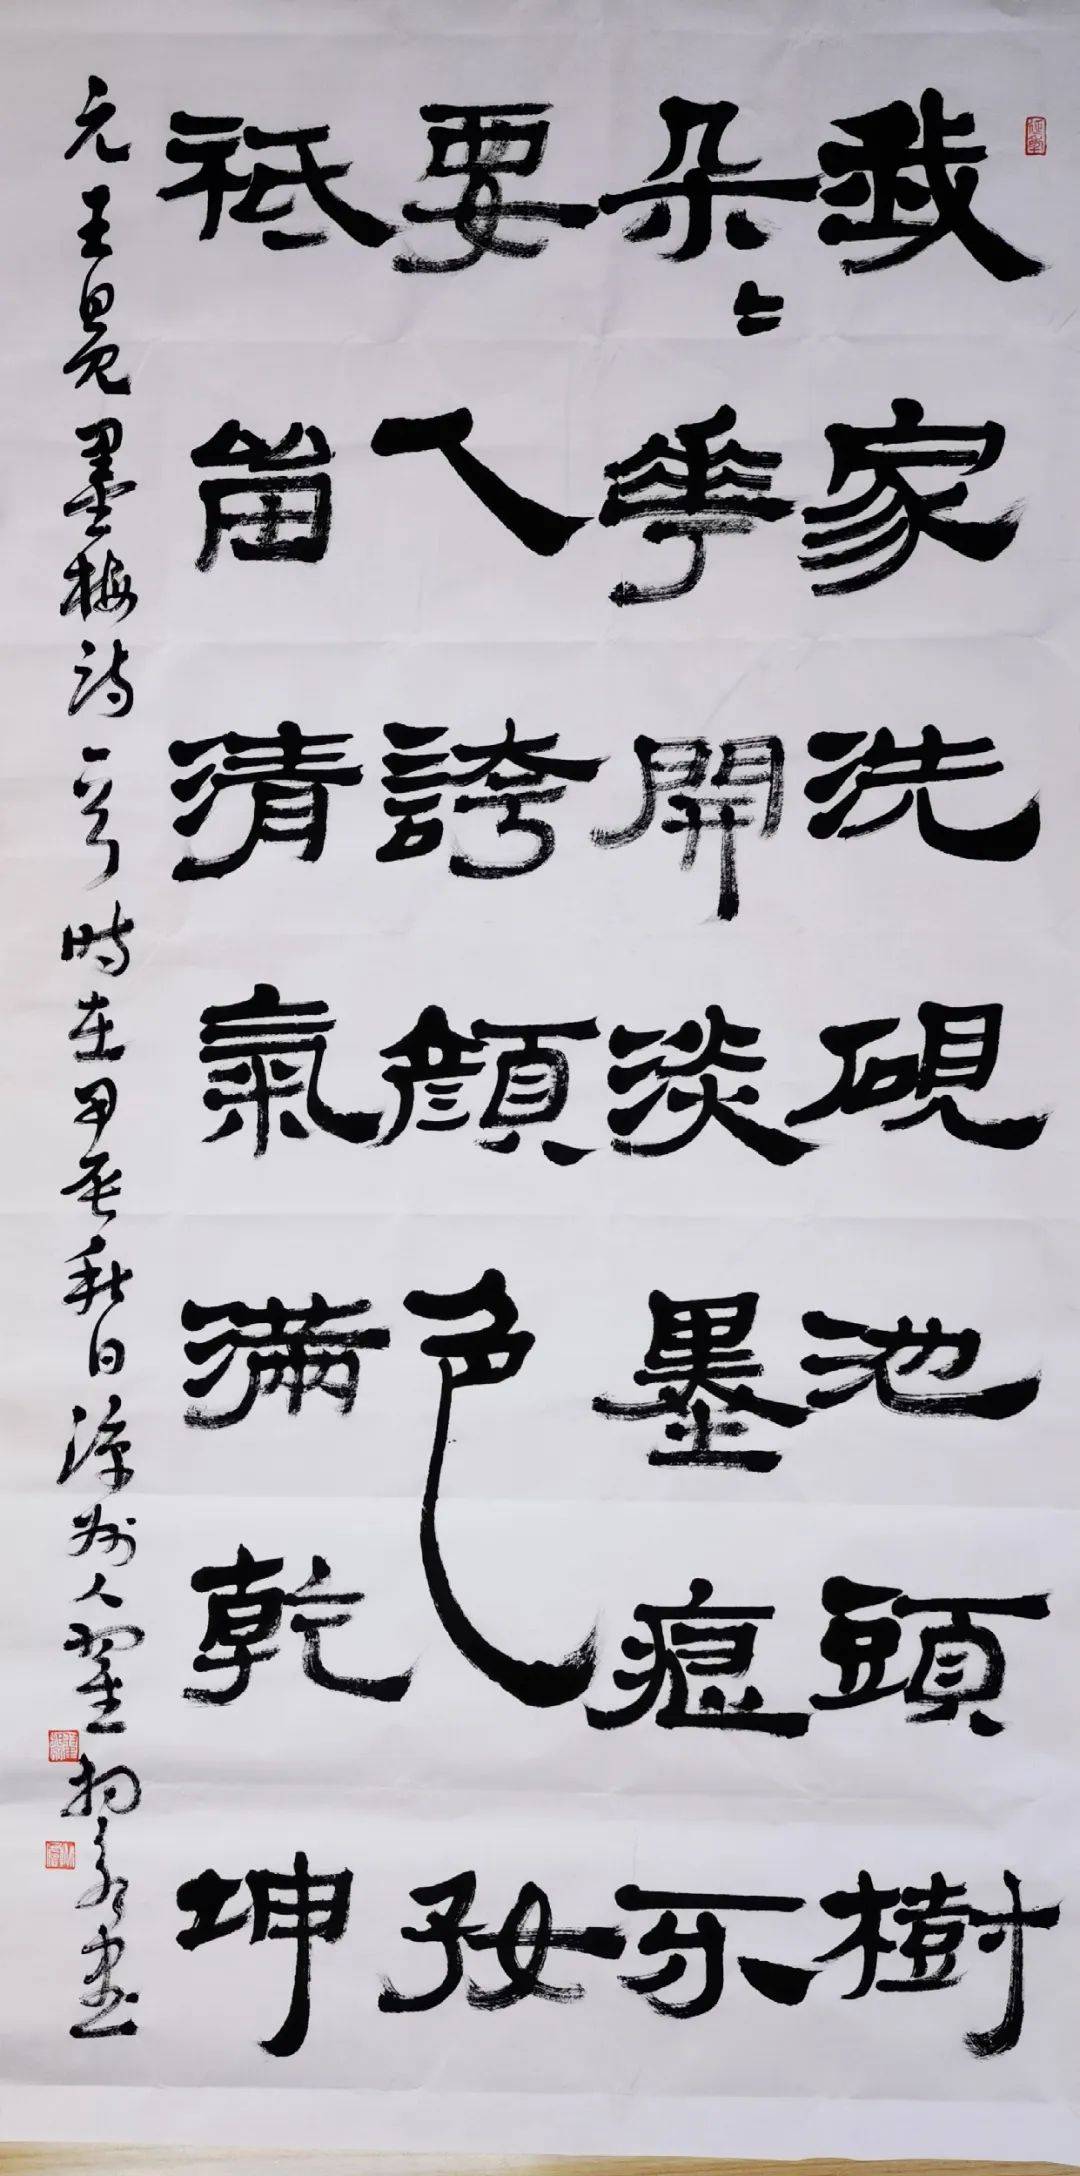 我家洗硯池頭樹
朵〻華開淡墨痕不
要人誇顏色好
祗留清氣滿乾坤
元王冕墨梅詩一首時在甲辰秋日涼州人翟相書